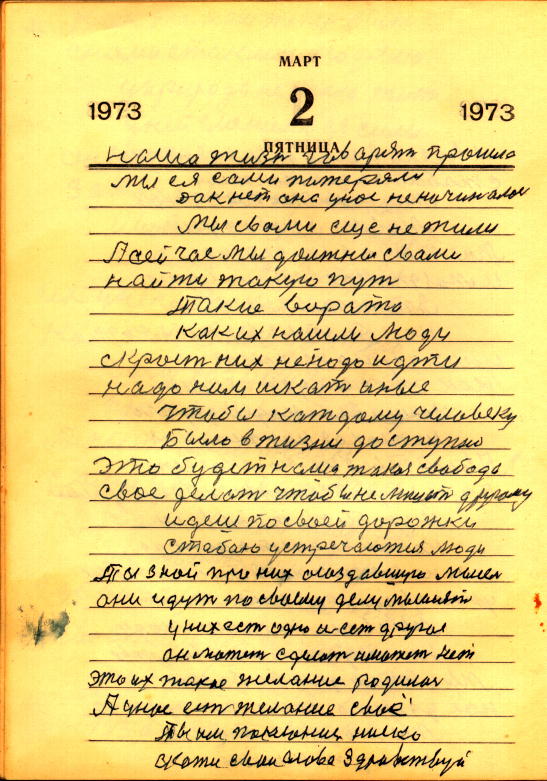 МАРТ
1973 2 1973
ПЯТНИЦА
наша жизн говарят прошла
мы ея сами потеряли
так нет она у нас неначиналос
Мы свами еще не жили
А сейчас мы должны свами
найти такую пут
Такие ворато
каких нашли люди
скрост них ненадо идти
надо нам искат иные
чтобы каждому человеку
Было в жизни доступно
это будет наша такая свобода
свое делат чтобы не мишат другому
идеш по своей дорожки
стабою устречаются люди
Ты знай про них создавшую
они идут по своему делу
у них ест одно и ест другое
он может сделат и может нет
Это их такое желание родилас
А у нас ест желание своё
Ты им поклонис ниско
скажи свои слова здравствуй